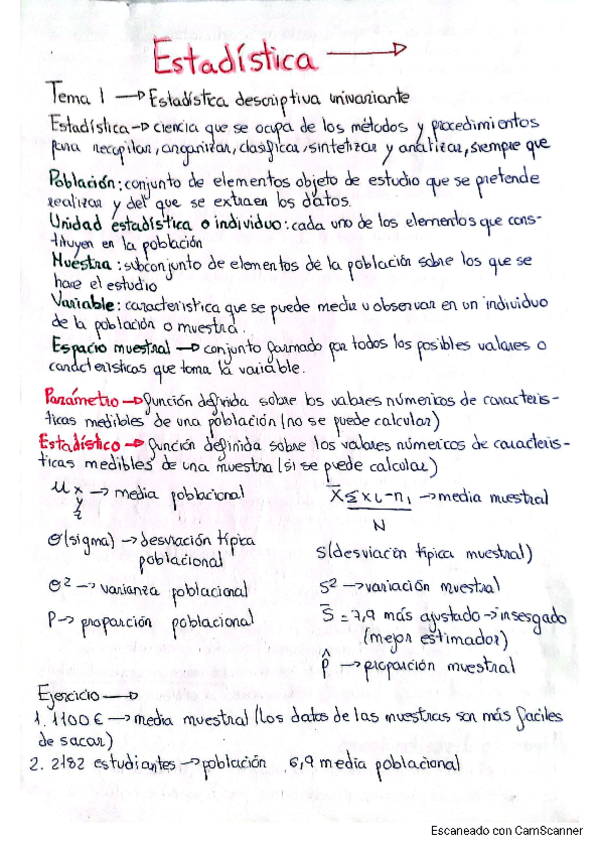 Estadística →
Tema 1 → Estadística descriptiva univariante
Estadística → ciencia que se ocupa de los métodos y procedimientos
para recopilar, organizar, clasificar, sintetizar y analizar, siempre que
Población: conjunto de elementos objeto de estudio que se pretende
realizar y del que se extraen los datos.
Unidad estadística o individuo: cada uno de los elementos que cons-
tituyen en la población
Muestra: subconjunto de elementos de la población sobre los que se
hace el estudio
Variable: característica que se puede medir u observar en un individuo
de la población o muestra.
Espacio muestral → conjunto formado por todos los posibles valores o
características que toma la variable.
Parámetro → función definida sobre los valores númericos de caracterís-
ticas medibles de una población (no se puede calcular)
Estadístico → función definida sobre los valores númericos de caracterís-
ticas medibles de una muestra (si se puede calcular)
μ x y z → media poblacional
σ (sigma) → desviación típica
poblacional
σ² → varianza poblacional
P → proporción poblacional
X̄ ≤ xi - n₁ → media muestral
N
S (desviación típica muestral)
S² → variación muestral
S̄ = 7,9 más ajustado → insesgado
(mejor estimador)
p̂ → proporción muestral
Ejercicio →
1. 1100 € → media muestral (Los datos de las muestras son más faciles
de sacar)
2. 2182 estudiantes → población 6,9 media poblacional
Escaneado con CamScanner